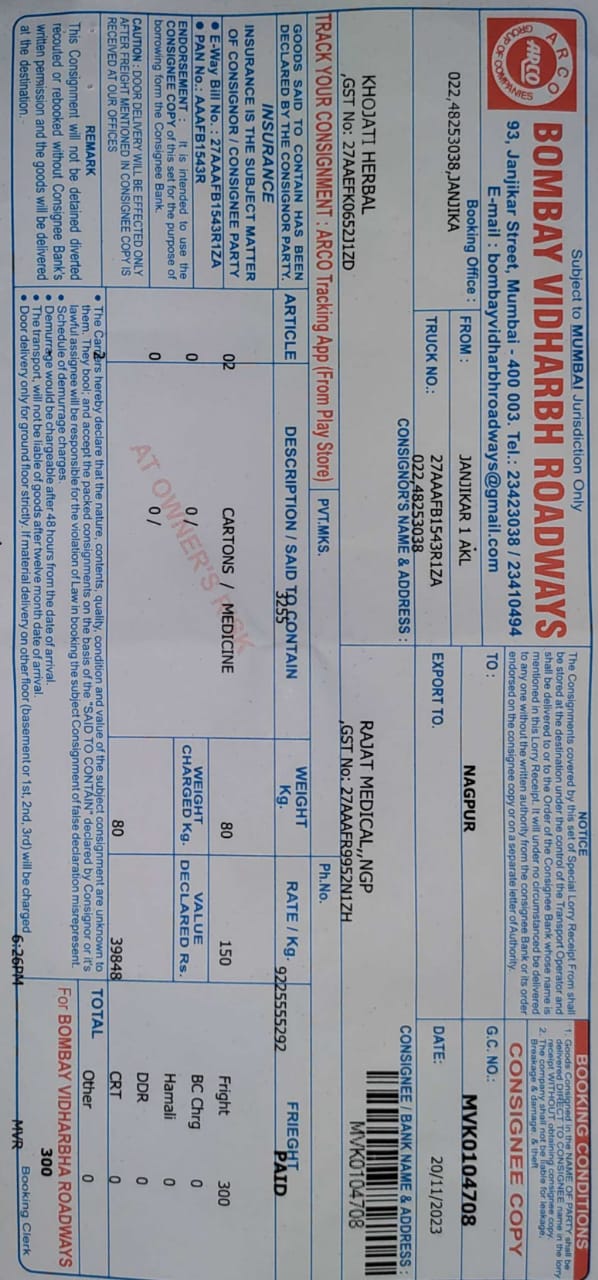 Subject to MUMBAI Jurisdiction Only
ARCO
ARCO
GROUP OF COMPANIES
BOMBAY VIDHARBH ROADWAYS
93, Janjikar Street, Mumbai - 400 003. Tel.: 23423038 / 23410494
E-mail : bombayvidharbhroadways@gmail.com
NOTICE
The Consignments covered by this set of Special Lorry Receipt From shall
be stored at the destination under the control of the Transport Operator and
shall be delivered to or to the Order of the Consignee Bank whose name is
mentioned in this Lorry Receipt. It will under no circumstanced be delivered
to any one without the written authority from the consignee Bank or its order
endorsed on the consignee copy or on a separate letter of Authority.
BOOKING CONDITIONS
1. Goods Consigned in the NAME OF PARTY shall be
delivered DIRECT TO CONSIGNEE name in the lorry
receipt WITHOUT obtaining consignee copy.
2. The company shall not be liable for leakage,
Breakage & damage & theft
CONSIGNEE COPY
Booking Office :
022,48253038,JANJIKA
FROM :
JANJIKAR 1 AKL
TO :
NAGPUR
G.C. NO.:
MVK0104708
TRUCK NO.:
27AAAFB1543R1ZA
022,48253038
EXPORT TO.
DATE:
20/11/2023
CONSIGNOR'S NAME & ADDRESS :
CONSIGNEE / BANK NAME & ADDRESS :
KHOJATI HERBAL
,GST No: 27AAEFK0652J1ZD
RAJAT MEDICAL,,NGP
,GST No: 27AAAFR9952N1ZH
MVK0104708
TRACK YOUR CONSIGNMENT : ARCO Tracking App (From Play Store)
PVT.MKS.
Ph.No.
GOODS SAID TO CONTAIN HAS BEEN
DECLARED BY THE CONSIGNOR PARTY.
INSURANCE
INSURANCE IS THE SUBJECT MATTER
OF CONSIGNOR / CONSIGNEE PARTY
• E-Way Bill No. : 27AAAFB1543R1ZA
• PAN No.: AAAFB1543R
ENDORSEMENT : It is intended to use the
CONSIGNEE COPY of this set for the purpose of
borrowing form the Consignee Bank.
CAUTION : DOOR DELIVERY WILL BE EFFECTED ONLY
AFTER FREIGHT MENTIONED IN CONSIGNEE COPY IS
RECEIVED AT OUR OFFICES
REMARK
This Consignment will not be detained diverted
recouted or rebooked without Consignee Bank's
written permission and the goods will be delivered
at the destination.
ARTICLE
DESCRIPTION / SAID TO CONTAIN
3255
WEIGHT
Kg.
RATE / Kg.
9225555292
FRIEGHT
PAID
02
CARTONS / MEDICINE
80
150
Fright 300
0
0 /
WEIGHT
CHARGED Kg.
VALUE
DECLARED Rs.
BC Chrg 0
Hamali 0
0
0 /
DDR 0
80
39848
CRT 0
AT OWNER'S RISK
2
TOTAL
Other 0
• The Carriers hereby declare that the nature, contents, quality, condition and value of the subject consignment are unknown to
them. They bool; and accept the packed consignments on the basis of the "SAID TO CONTAIN" declared by Consignor or it's
lawful assignee will be responsible for the violation of Law in booking the subject Consignment of false declaration misrepresent.
• Schedule of demurrage charges.
• Demurrage would be chargeable after 48 hours from the date of arrival.
• The transport, will not be liable of goods after twelve month date of arrival.
• Door delivery only for ground floor strictly. If material delivery on other floor (basement or 1st, 2nd, 3rd) will be charged
For BOMBAY VIDHARBHA ROADWAYS
300
6:26PM
MVR
Booking Clerk